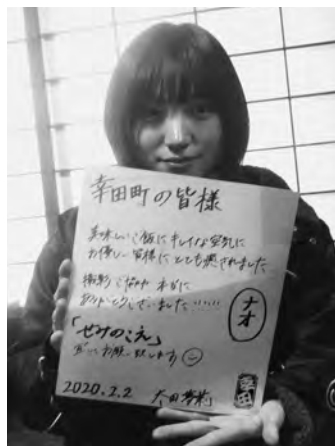 幸田町の皆様
美味しいご飯にキレイな空気に
お優しい皆様にとても癒されました
撮影ご協力 本当に
ありがとうございました……
ナオ
「せみのこえ」
宜しくお願い致します
2020.2.2
幸田